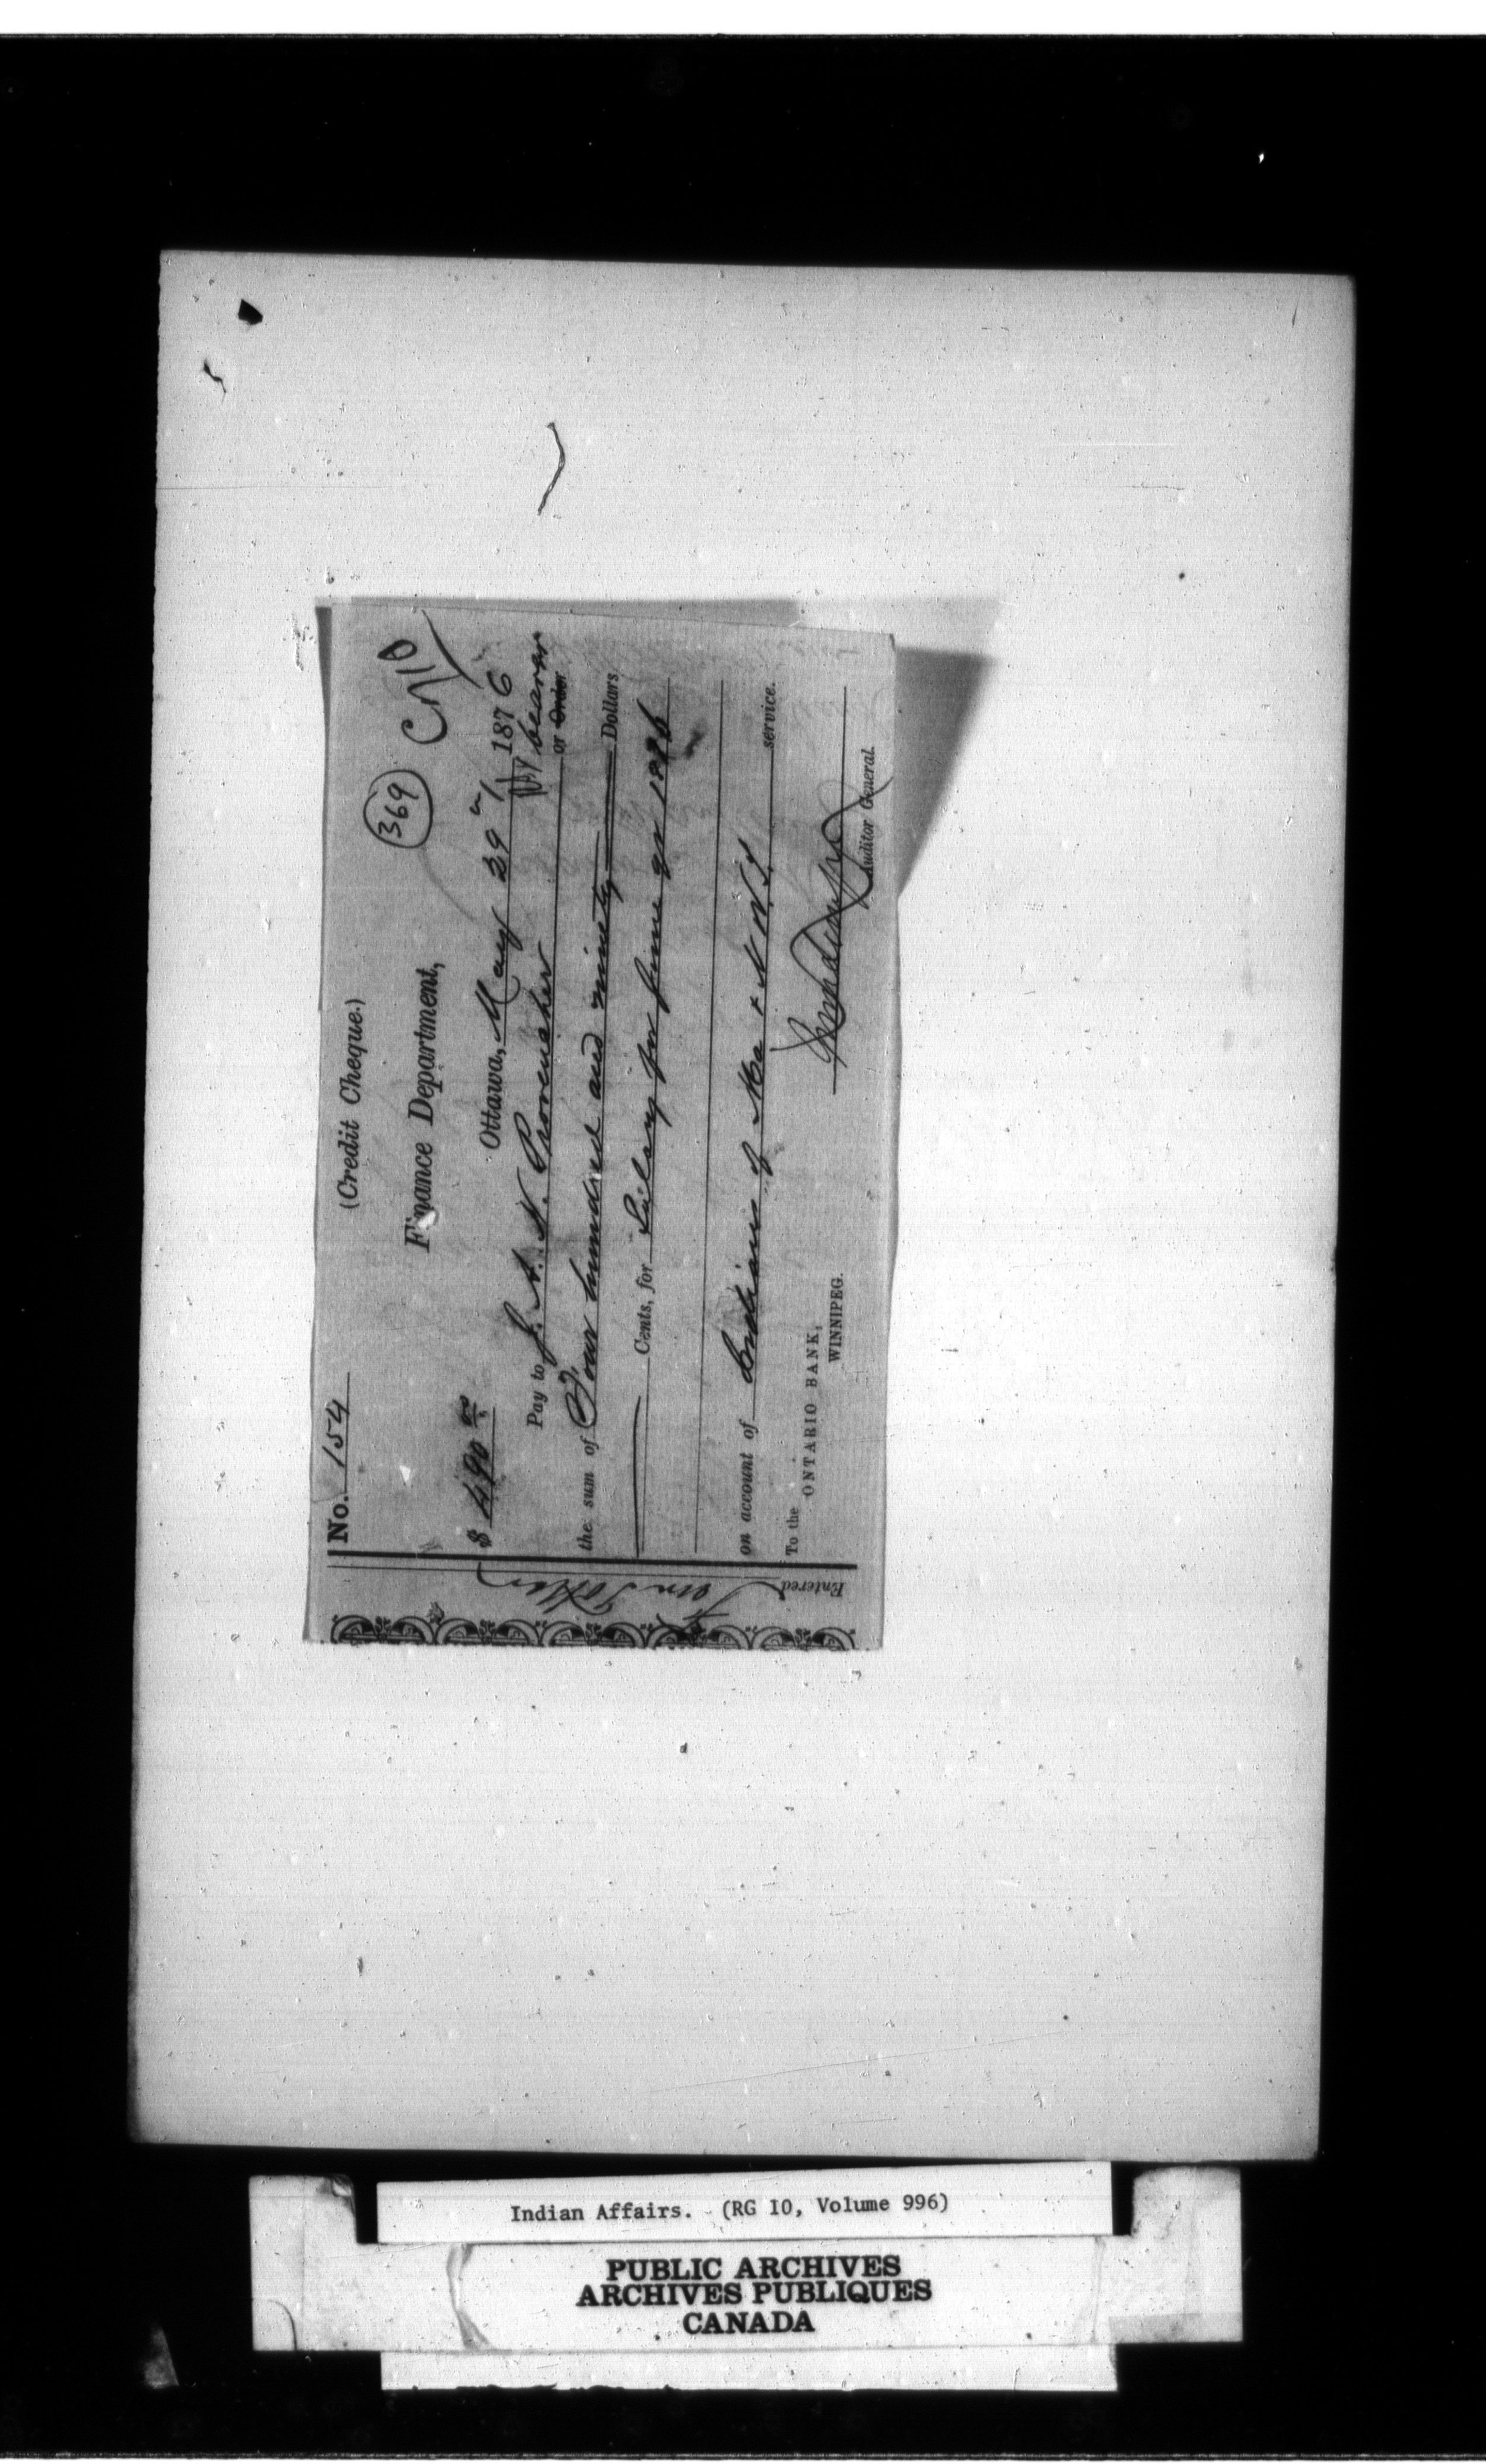 No. 154 (Credit Cheque.)
369
Finance Department,
$ 490 00 Ottawa, May 29 1876
Pay to J. A. N. Provencher or Order bearer
the sum of Four hundred and ninety Dollars
Cents, for Salary for June qr 1876
on account of Indians of Ma & N W T. service.
To the
ONTARIO BANK,
WINNIPEG.
Auditor General.
Entered
Indian Affairs. (RG 10, Volume 996)
PUBLIC ARCHIVES
ARCHIVES PUBLIQUES
CANADA